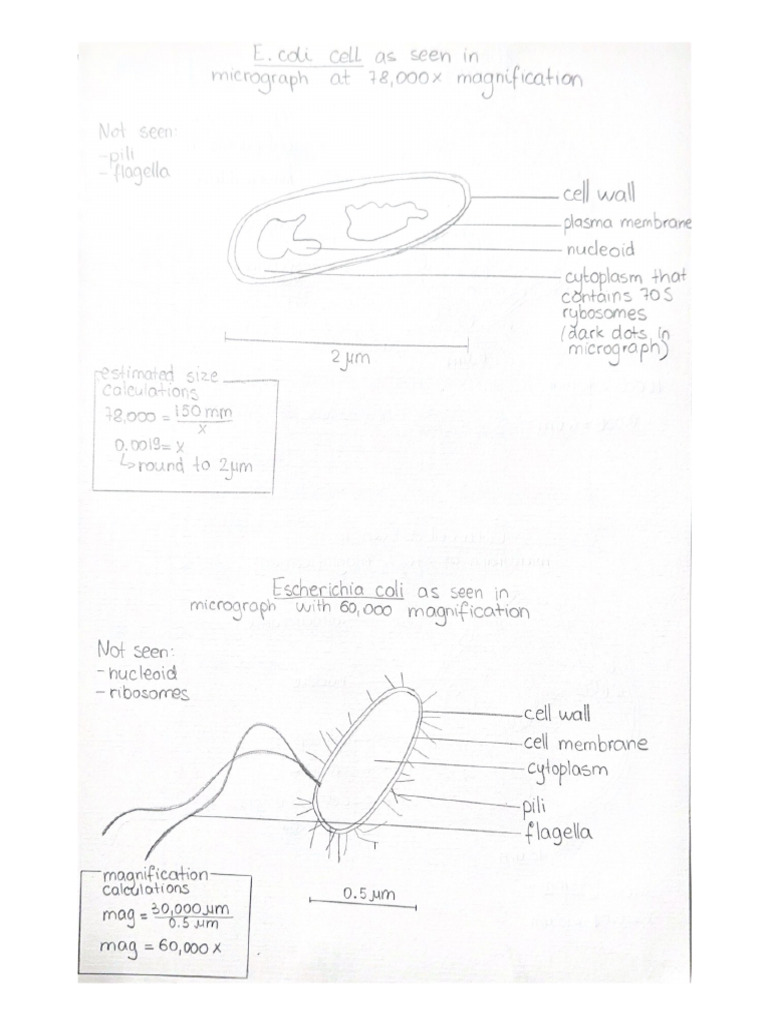 E. coli cell as seen in
micrograph at 78,000x magnification
Not seen:
-pili
- flagella
cell wall
plasma membrane
nucleoid
cytoplasm that
contains 70S
rybosomes
(dark dots in
micrograph)
2 µm
estimated size
calculations
78,000 = 150 mm
x
0.0019 = x
↳ round to 2µm
Escherichia coli as seen in
micrograph with 60,000 magnification
Not seen:
- nucleoid
- ribosomes
cell wall
cell membrane
cytoplasm
pili
flagella
0.5 µm
magnification
calculations
mag = 30,000 µm
0.5 µm
mag = 60,000 x